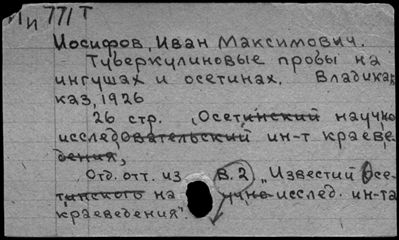 Ии 77/Т
Иосифов, Иван Максимович.
Туберкулиновые пробы на
ингушах и осетинах. Владикав
каз, 1926
26 стр. „Осетинский научно
исследовательский ин-т краеве-
дения,
Отд. отт. из В.2 „Известий Осе-
тинского научно исслед. ин-та
краеведения".